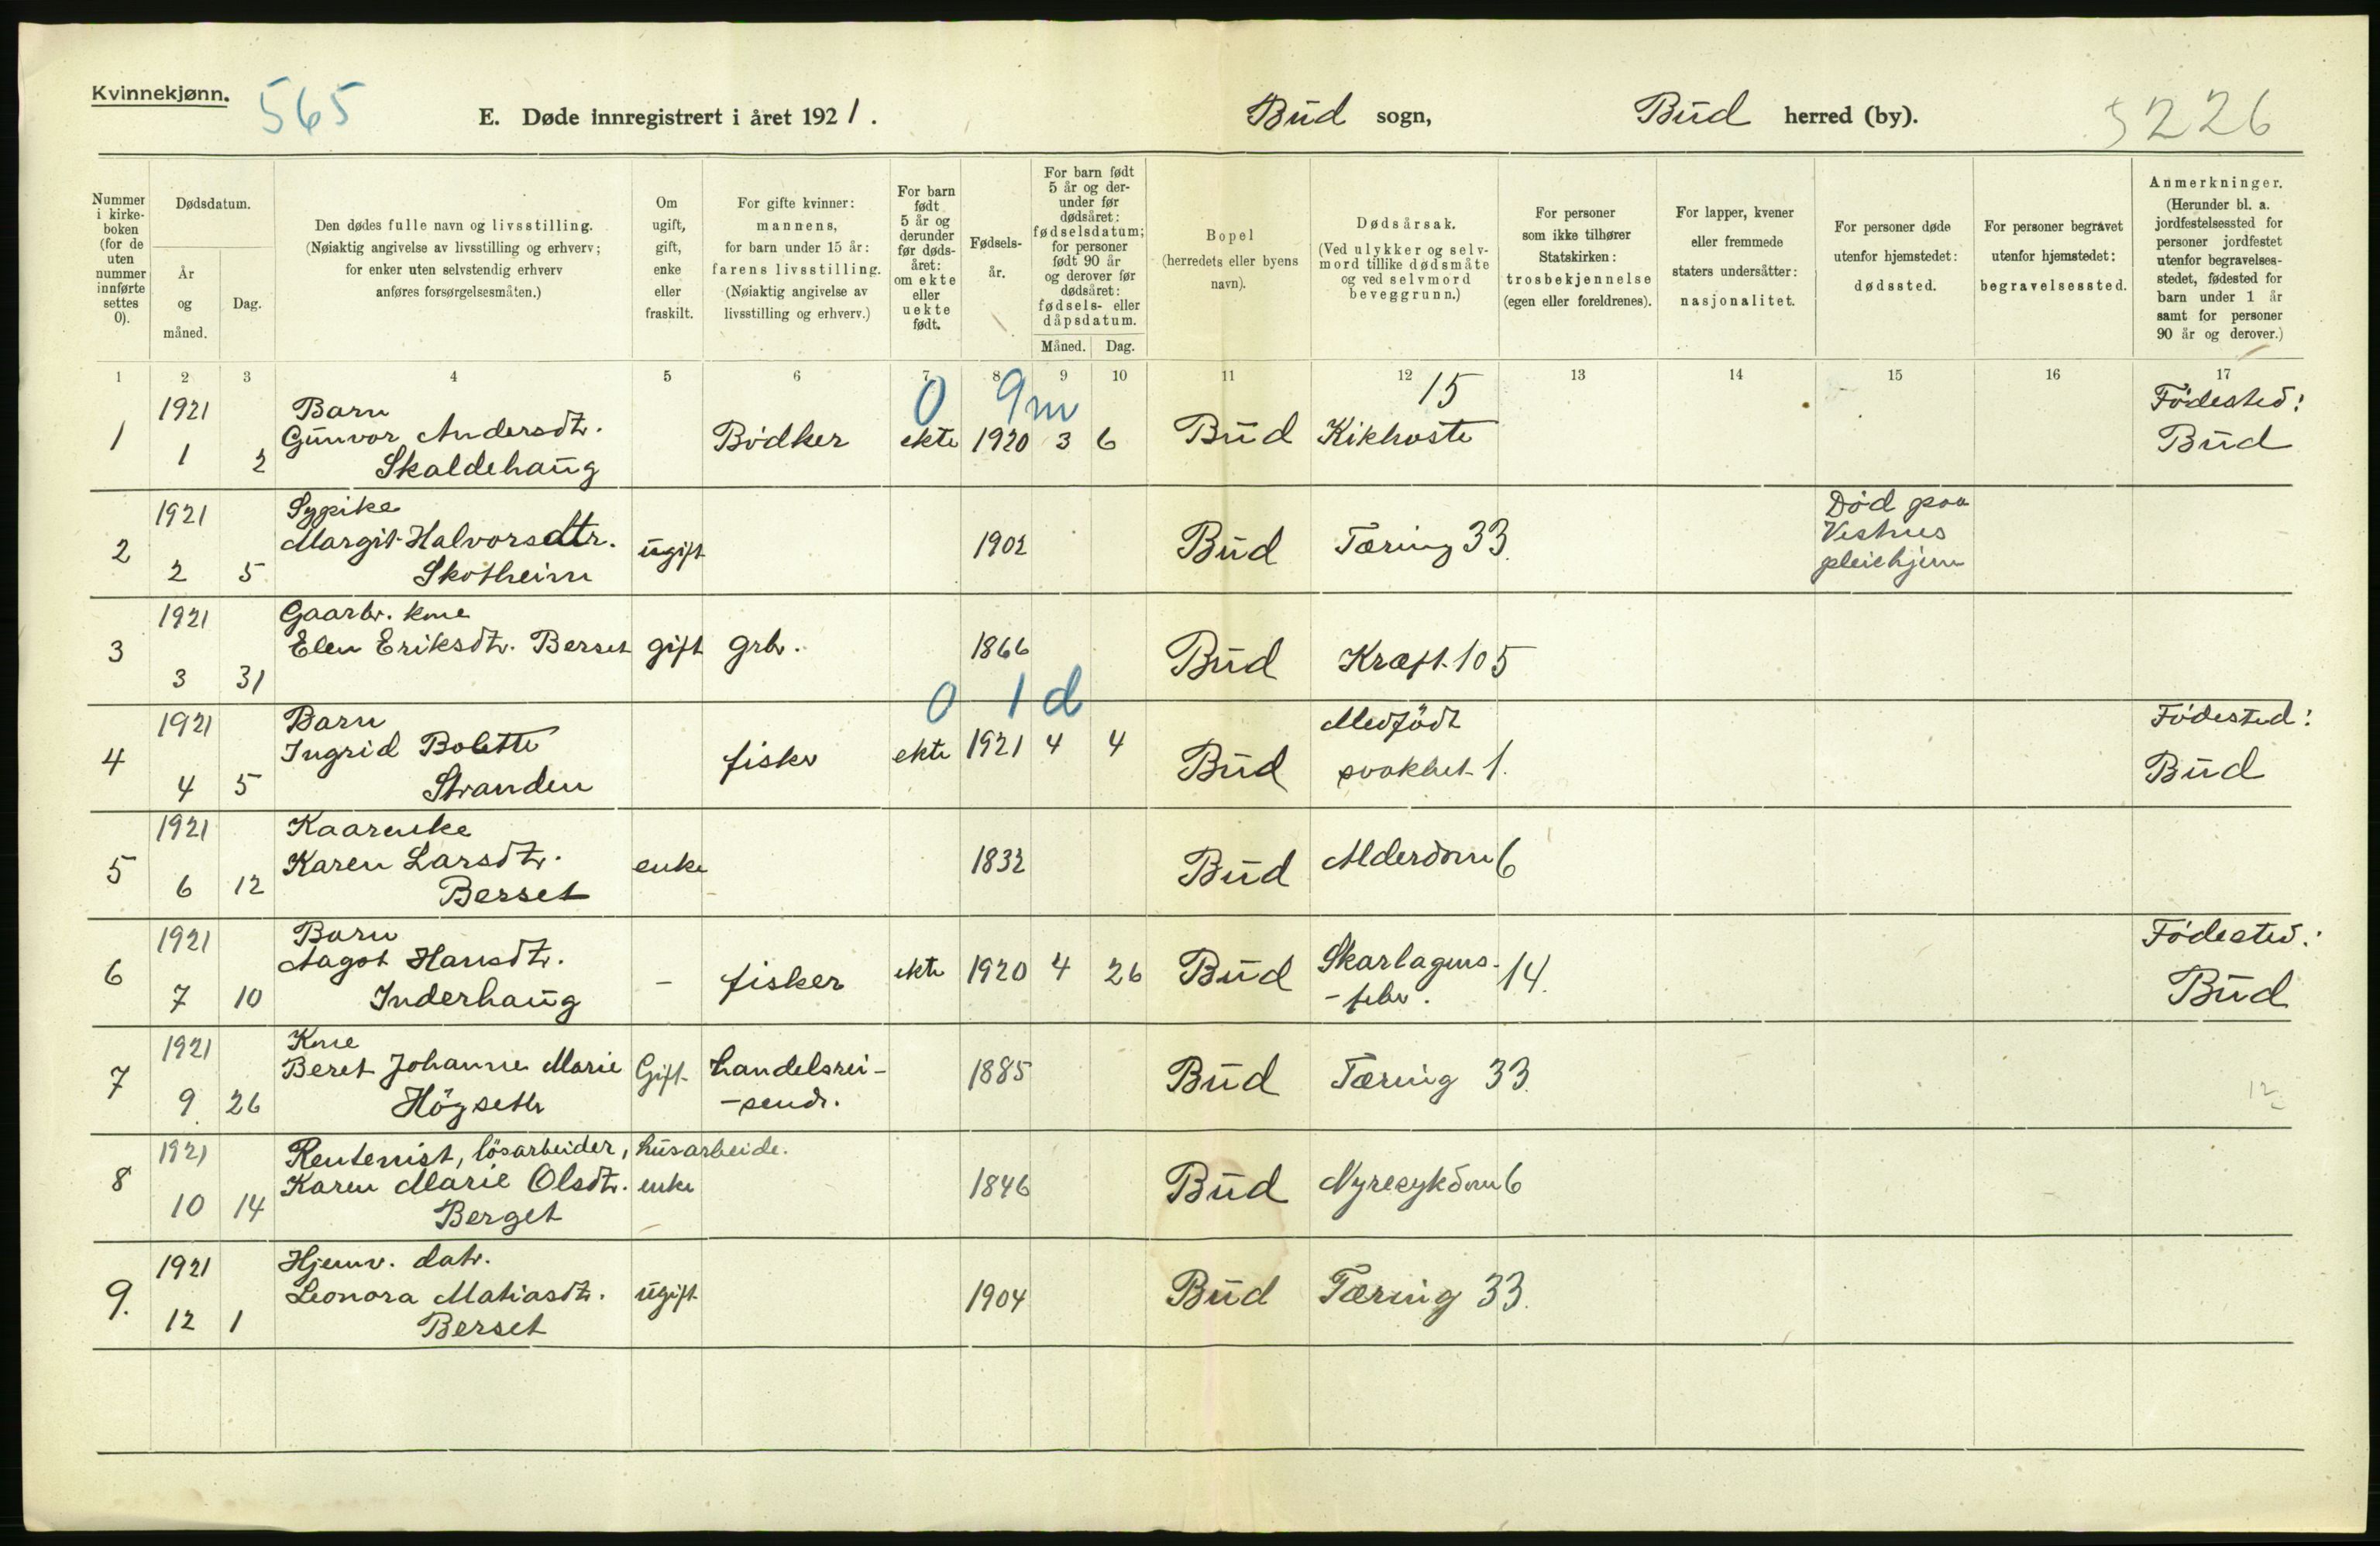 Kvinnekjønn.
565
E. Døde innregistrert i året 1921.
Bud sogn,
Bud herred (by).
5226
Nummer i kirke-boken (for de uten nummer innførte settes 0).
Dødsdatum.
År og måned.
Dag.
Den dødes fulle navn og livsstilling.
(Nøiaktig angivelse av livsstilling og erhverv;
for enker uten selvstendig erhverv
anføres forsørgelsesmåten.)
Om ugift, gift, enke eller fraskilt.
For gifte kvinner: mannens,
for barn under 15 år:
farens livsstilling.
(Nøiaktig angivelse av
livsstilling og erhverv.)
For barn født 5 år og derunder før døds-året: om ekte eller uekte født.
Fødsels-år.
For barn født 5 år og der-under før dødsåret: fødselsdatum; for personer født 90 år og derover før dødsåret: fødsels- eller dåpsdatum.
Måned. Dag.
Bopel (herredets eller byens navn).
Dødsårsak.
(Ved ulykker og selv-mord tillike dødsmåte og ved selvmord beveggrunn.)
For personer som ikke tilhører Statskirken: trosbekjennelse (egen eller foreldrenes).
For lapper, kvener eller fremmede staters undersåtter: nasjonalitet.
For personer døde utenfor hjemstedet: dødssted.
For personer begravet utenfor hjemstedet: begravelsessted.
Anmerkninger.
(Herunder bl. a. jordfestelsessted for personer jordfestet utenfor begravelses-stedet, fødested for barn under 1 år samt for personer 90 år og derover.)
1 2 3 4 5 6 7 8 9 10 11 12 13 14 15 16 17
0 9m 15
1 1921 1 2 Barn
Gunvor Andersdtr.
Skaldehaug
Bødker ekte 1920 3 6 Bud Kikhoste
Fødested:
Bud
2 1921 2 5 Sypike
Margit Halvorsdtr.
Skotheim
ugift 1902 Bud Tæring 33.
Død paa
Veshus
pleiehjem
3 1921 3 31 Gaarbr. kone
Elen Eriksdtr. Berset gift grbr. 1866 Bud Kræft 105
0 1d
4 1921 4 5 Barn
Ingrid Bolette
Stranden
fisker ekte 1921 4 4 Bud Medfødt
svakhet 1.
Fødested:
Bud
5 1921 6 12 Kaarenke
Karen Larsdtr.
Berset
enke 1832 Bud Alderdom 6
6 1921 7 10 Barn
Aagot Hansdtr.
Inderhaug
- fisker ekte 1920 4 26 Bud Skarlagens-
-feber. 14.
Fødested:
Bud
7 1921 9 26 Kone
Beret Johanne Marie
Høgseth
Gift handelsrei-
-sende. 1885 Bud Tæring 33.
12
8 1921 10 14 Rentenist, løsarbeider, husarbeide.
Karen Marie Olsdtr.
Berget
enke 1846 Bud Nyresykdom 6
9. 1921 12 1 Hjemv. datr.
Leonora Matiasdtr.
Berset
ugift 1904 Bud Tæring 33.